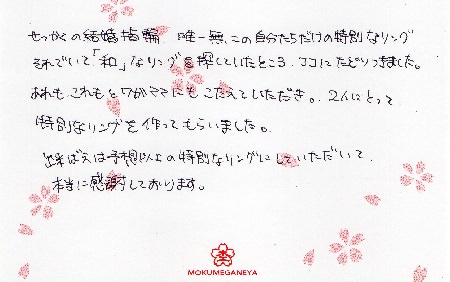 せっかくの結婚指輪、唯一無二の自分たちだけの特別なリング
それでいて「和」なリングを探していたところ、ココにたどりつきました。
あれもこれもとワガママにもこたえていただき、2人にとって
特別なリングを作ってもらいました。
出来ばえは予想以上の特別なリングにしていただいて、
本当に感謝しております。
MOKUMEGANEYA